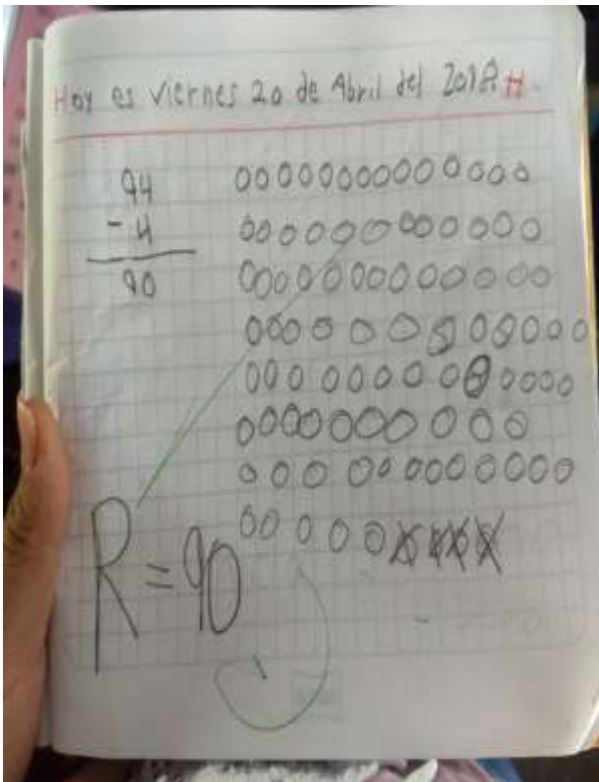 Hoy es viernes 20 de Abril del 2018.
94
- 4
90
R=90